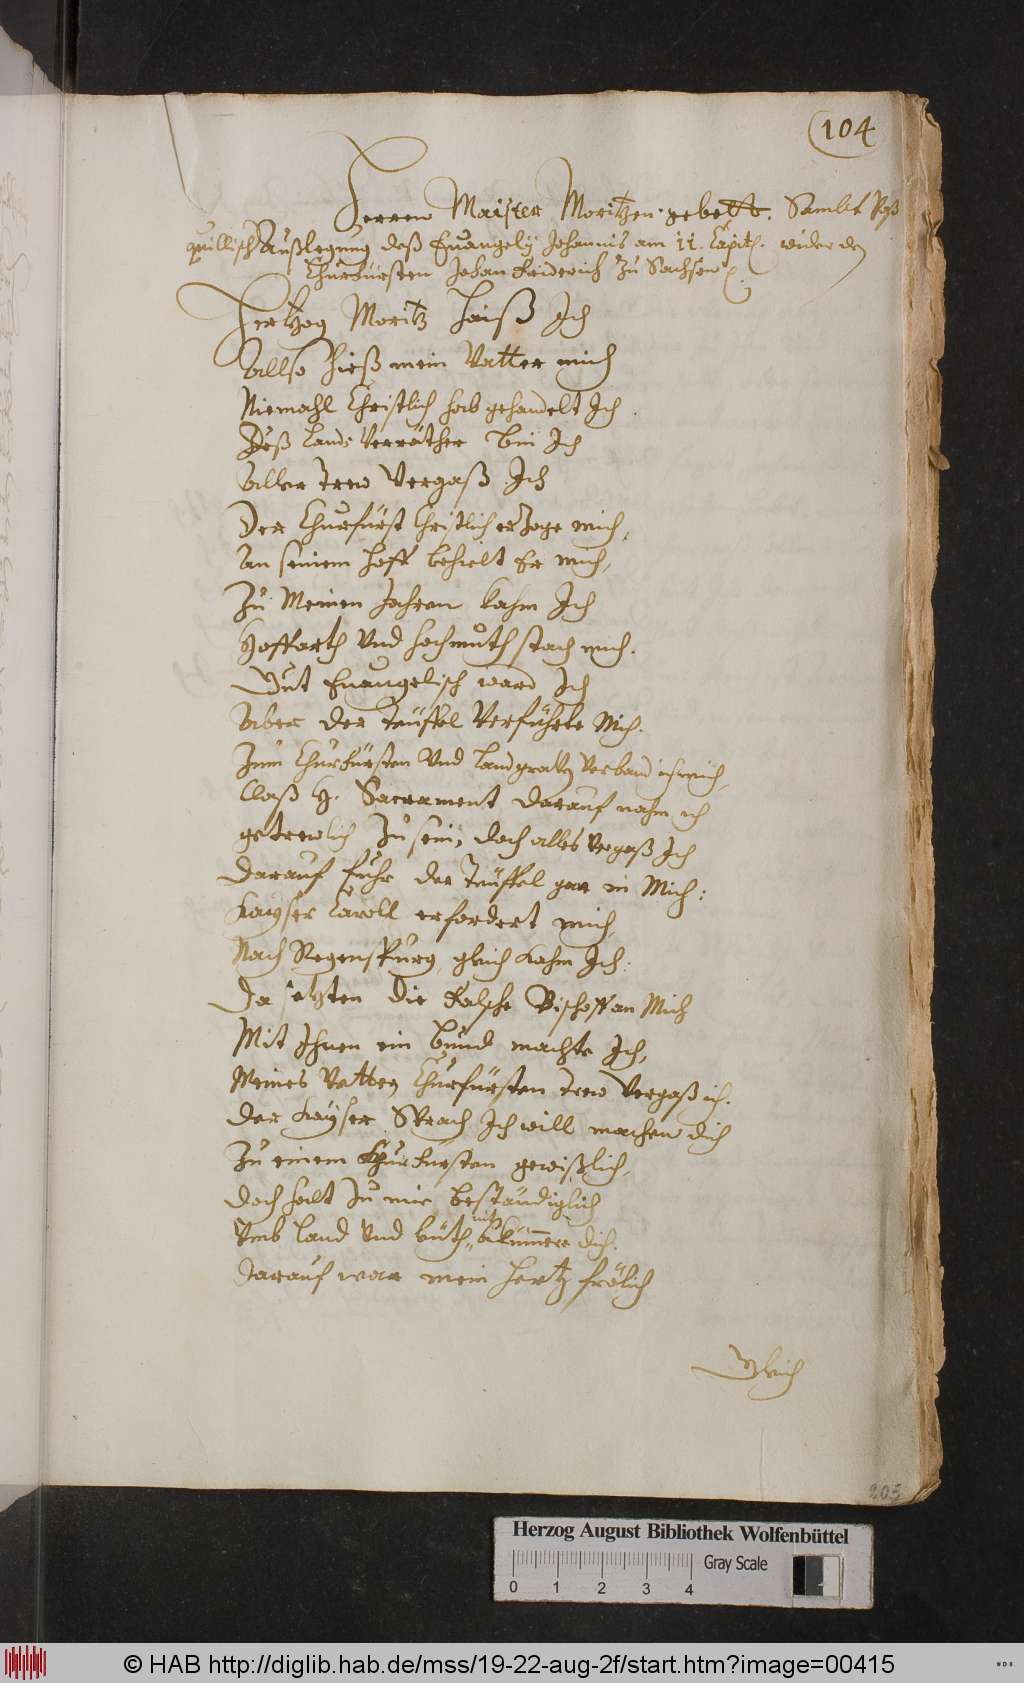 104
Herren Maister Moritzen gebett. Sambt Paß
quillisch Außlegung deß Euangelij Johannis am 11. Capitl. wider den
Churfürsten Johan Friderich Zu Sachsen
Hertzog Moritz haiß Ich
Allso hieß mein Vatter mich
Niemahl Christlich hab gehandelt Ich
Deß Lands Verräther bin Ich
Aller trew Vergaß Ich
Der Churfürst Christlich erzoge mich,
An seinem hoff behielt Er mich,
Zu Meinen Jahren kahm Ich
Hoffarth Vnd hochmuth stach mich.
Gut Euangelisch ward Ich
Aber der teüffel Verführte Mich.
Zum Churfürsten Vnd Landgraffen Verband ich mich,
Das H. Sacrament darauf nahm ich
getrewlich Zu sein, doch alles Vergaß Ich
Darauf fuhr der Teüffel gar in Mich:
Kayser Caroll erfordert mich,
Nach Regenspurg gleich kahm Ich:
Da setzten die Falsche Bischoff an Mich
Mit Ihnen ein bund machte Ich,
Meines Vatters Churfürsten trew Vergaß ich.
Der Kayser Sprach Ich will machen dich
Zu einem Churfürsten gewißlich,
Doch halt Zu mir beständiglich
Vmb Land Vnd Leüth nit bekümmere dich.
Darauf war mein hertz frölich
Gleich
205
Herzog August Bibliothek Wolfenbüttel
Gray Scale
0 1 2 3 4
© HAB http://diglib.hab.de/mss/19-22-aug-2f/start.htm?image=00415